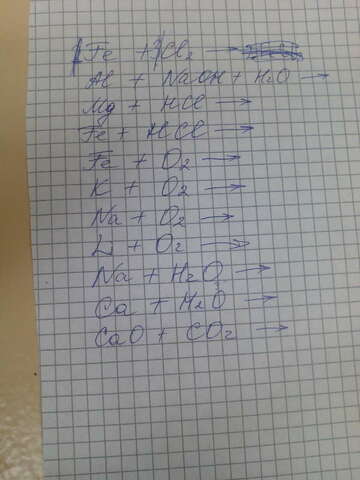 Fe + 3Cl₂ →
Al + NaOH + H₂O →
Mg + HCl →
Fe + HCl →
Fe + O₂ →
K + O₂ →
Na + O₂ →
Li + O₂ →
Na + H₂O →
Ca + H₂O →
CaO + CO₂ →